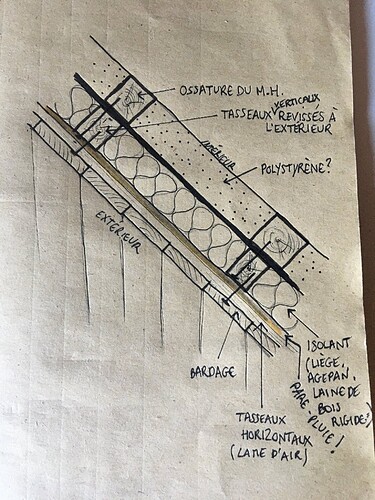 OSSATURE DU M.H.
TASSEAUX VERTICAUX REVISSÉS À
L'EXTÉRIEUR
INTÉRIEUR
POLYSTYRÈNE?
EXTÉRIEUR
ISOLANT
(LIÈGE,
AGEPAN,
LAINE DE
BOIS
RIGIDE?)
PARE PLUIE!
BARDAGE
TASSEAUX
HORIZONTAUX
(LAME D'AIR)